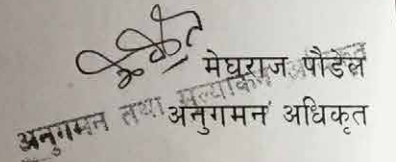 मेघराज पौडेल
अनुगमन तथा मूल्यांकन अधिकृत
अनुगमन अधिकृत